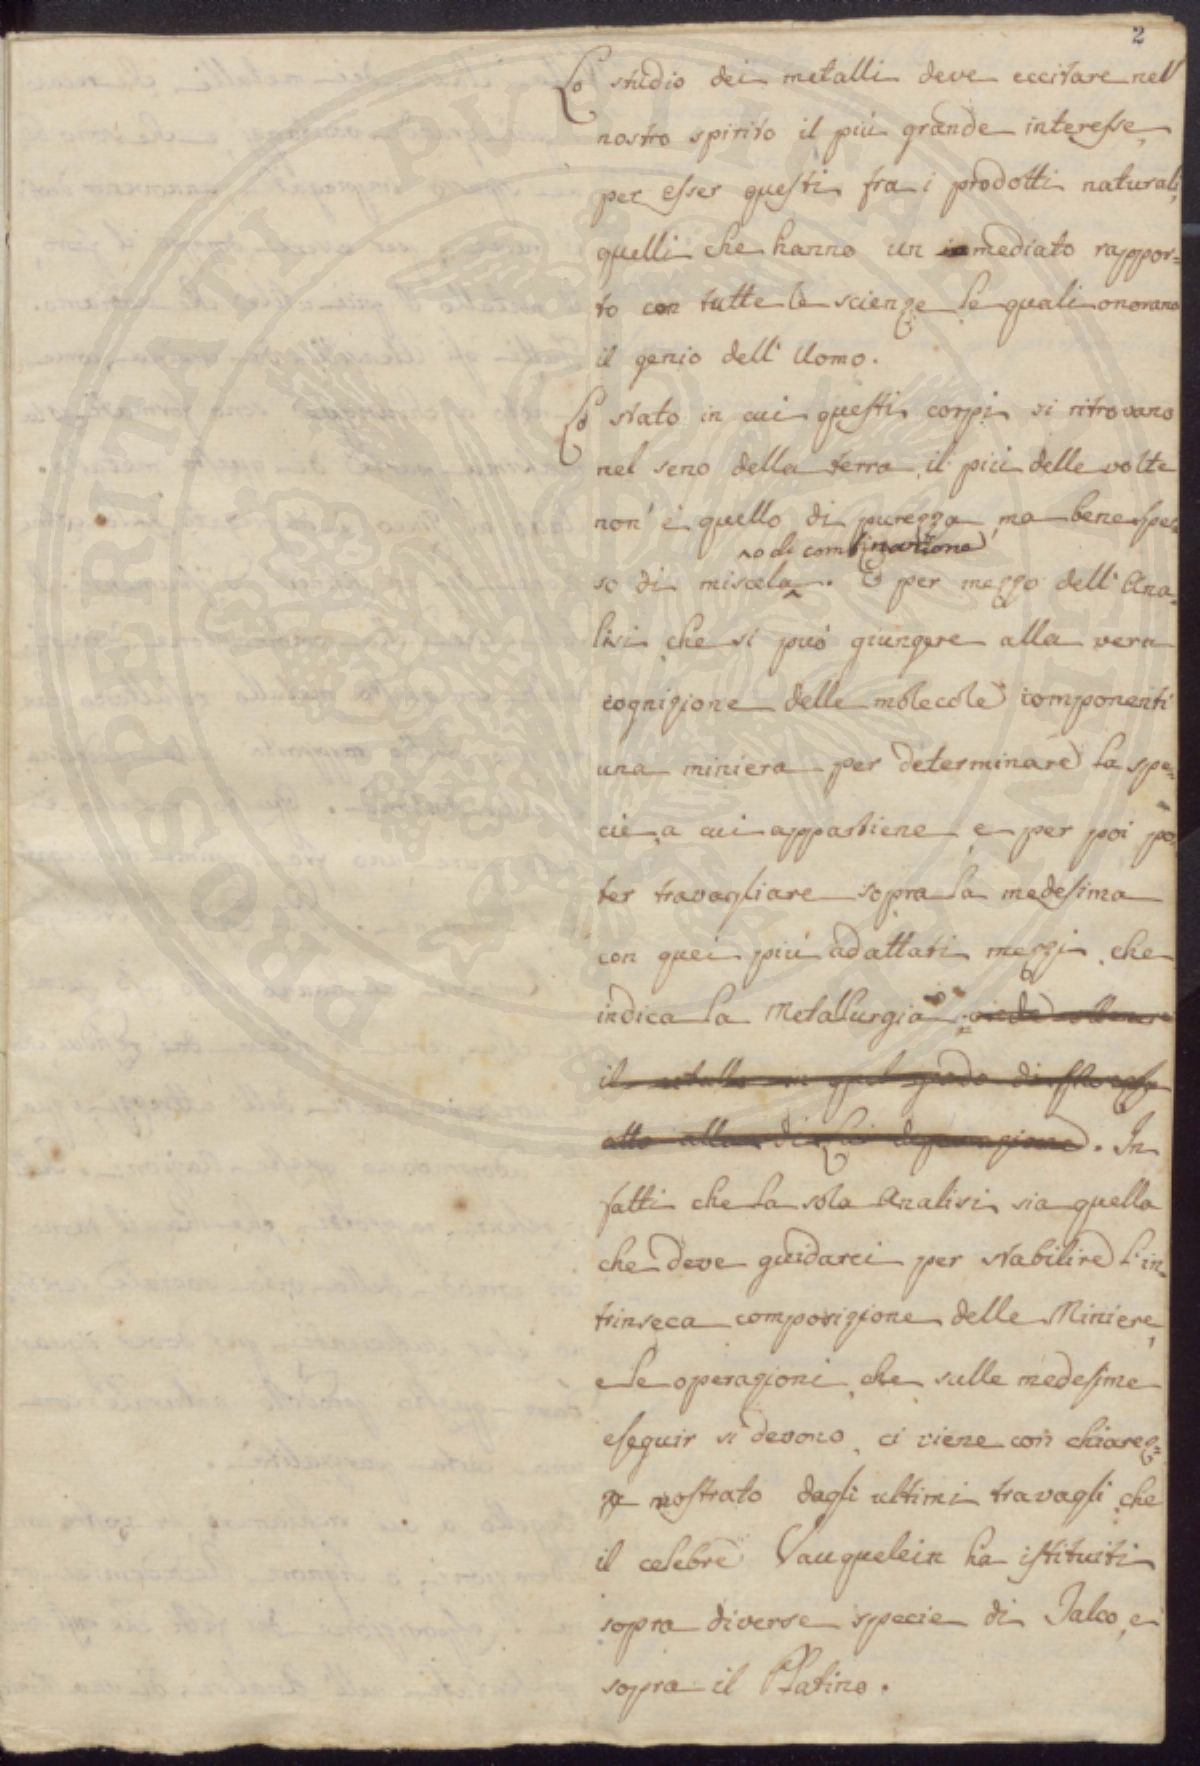 2
Lo studio dei metalli deve eccitare nell'
nostro spirito il più grande interesse,
per esser questi fra i prodotti naturali,
quelli che hanno un immediato rappor=
to con tutte le scienze le quali onorano
il genio dell' Uomo.
Lo stato in cui questi corpi si ritrovano
nel seno della terra il più delle volte
non è quello di purezza, ma bene spes=
o di combinazione
so di miscela. E per mezzo dell' Ana=
lisi che si può giungere alla vera
cognizione delle molecole componenti
una miniera per determinare la spe=
cie a cui appartiene, e per poi po=
ter travagliare sopra la medesima
con quei più adattati mezzi che
indica la Metallurgia
il metallo in quel grado di
atto alla di lui depurazione. In
fatti che la sola Analisi sia quella
che deve guidarci per stabilire l'in=
trinseca composizione delle Miniere,
e le operazioni che sulle medesime
eseguir si devono, ci viene con chiarez=
za mostrato dagli ultimi travagli che
il celebre Vauquelein ha istituiti
sopra diverse specie di Talco, e
sopra il Platino.
PROSPERITATI PUBLICAE